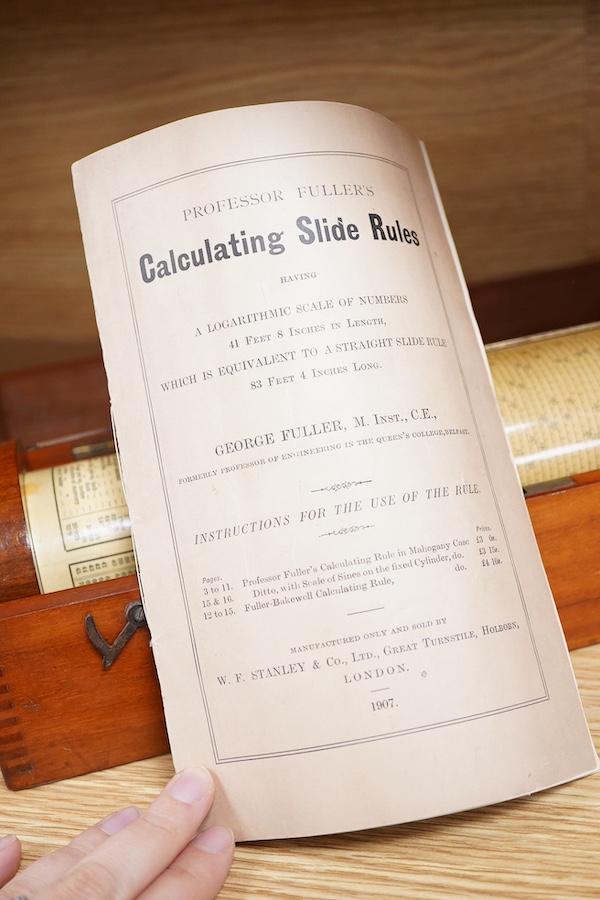 PROFESSOR FULLER'S
Calculating Slide Rules
HAVING
A LOGARITHMIC SCALE OF NUMBERS
41 FEET 8 INCHES IN LENGTH,
WHICH IS EQUIVALENT TO A STRAIGHT SLIDE RULE
83 FEET 4 INCHES LONG.
GEORGE FULLER, M. INST., C.E.,
FORMERLY PROFESSOR OF ENGINEERING IN THE QUEEN'S COLLEGE, BELFAST.
INSTRUCTIONS FOR THE USE OF THE RULE.
Pages. Prices.
3 to 11. Professor Fuller's Calculating Rule in Mahogany Case £3 0s.
15 & 16. Ditto, with Scale of Sines on the fixed Cylinder, do. £3 15s.
12 to 15. Fuller-Bakewell Calculating Rule, do. £4 10s.
MANUFACTURED ONLY AND SOLD BY
W. F. STANLEY & CO., LTD., GREAT TURNSTILE, HOLBORN,
LONDON.
1907.